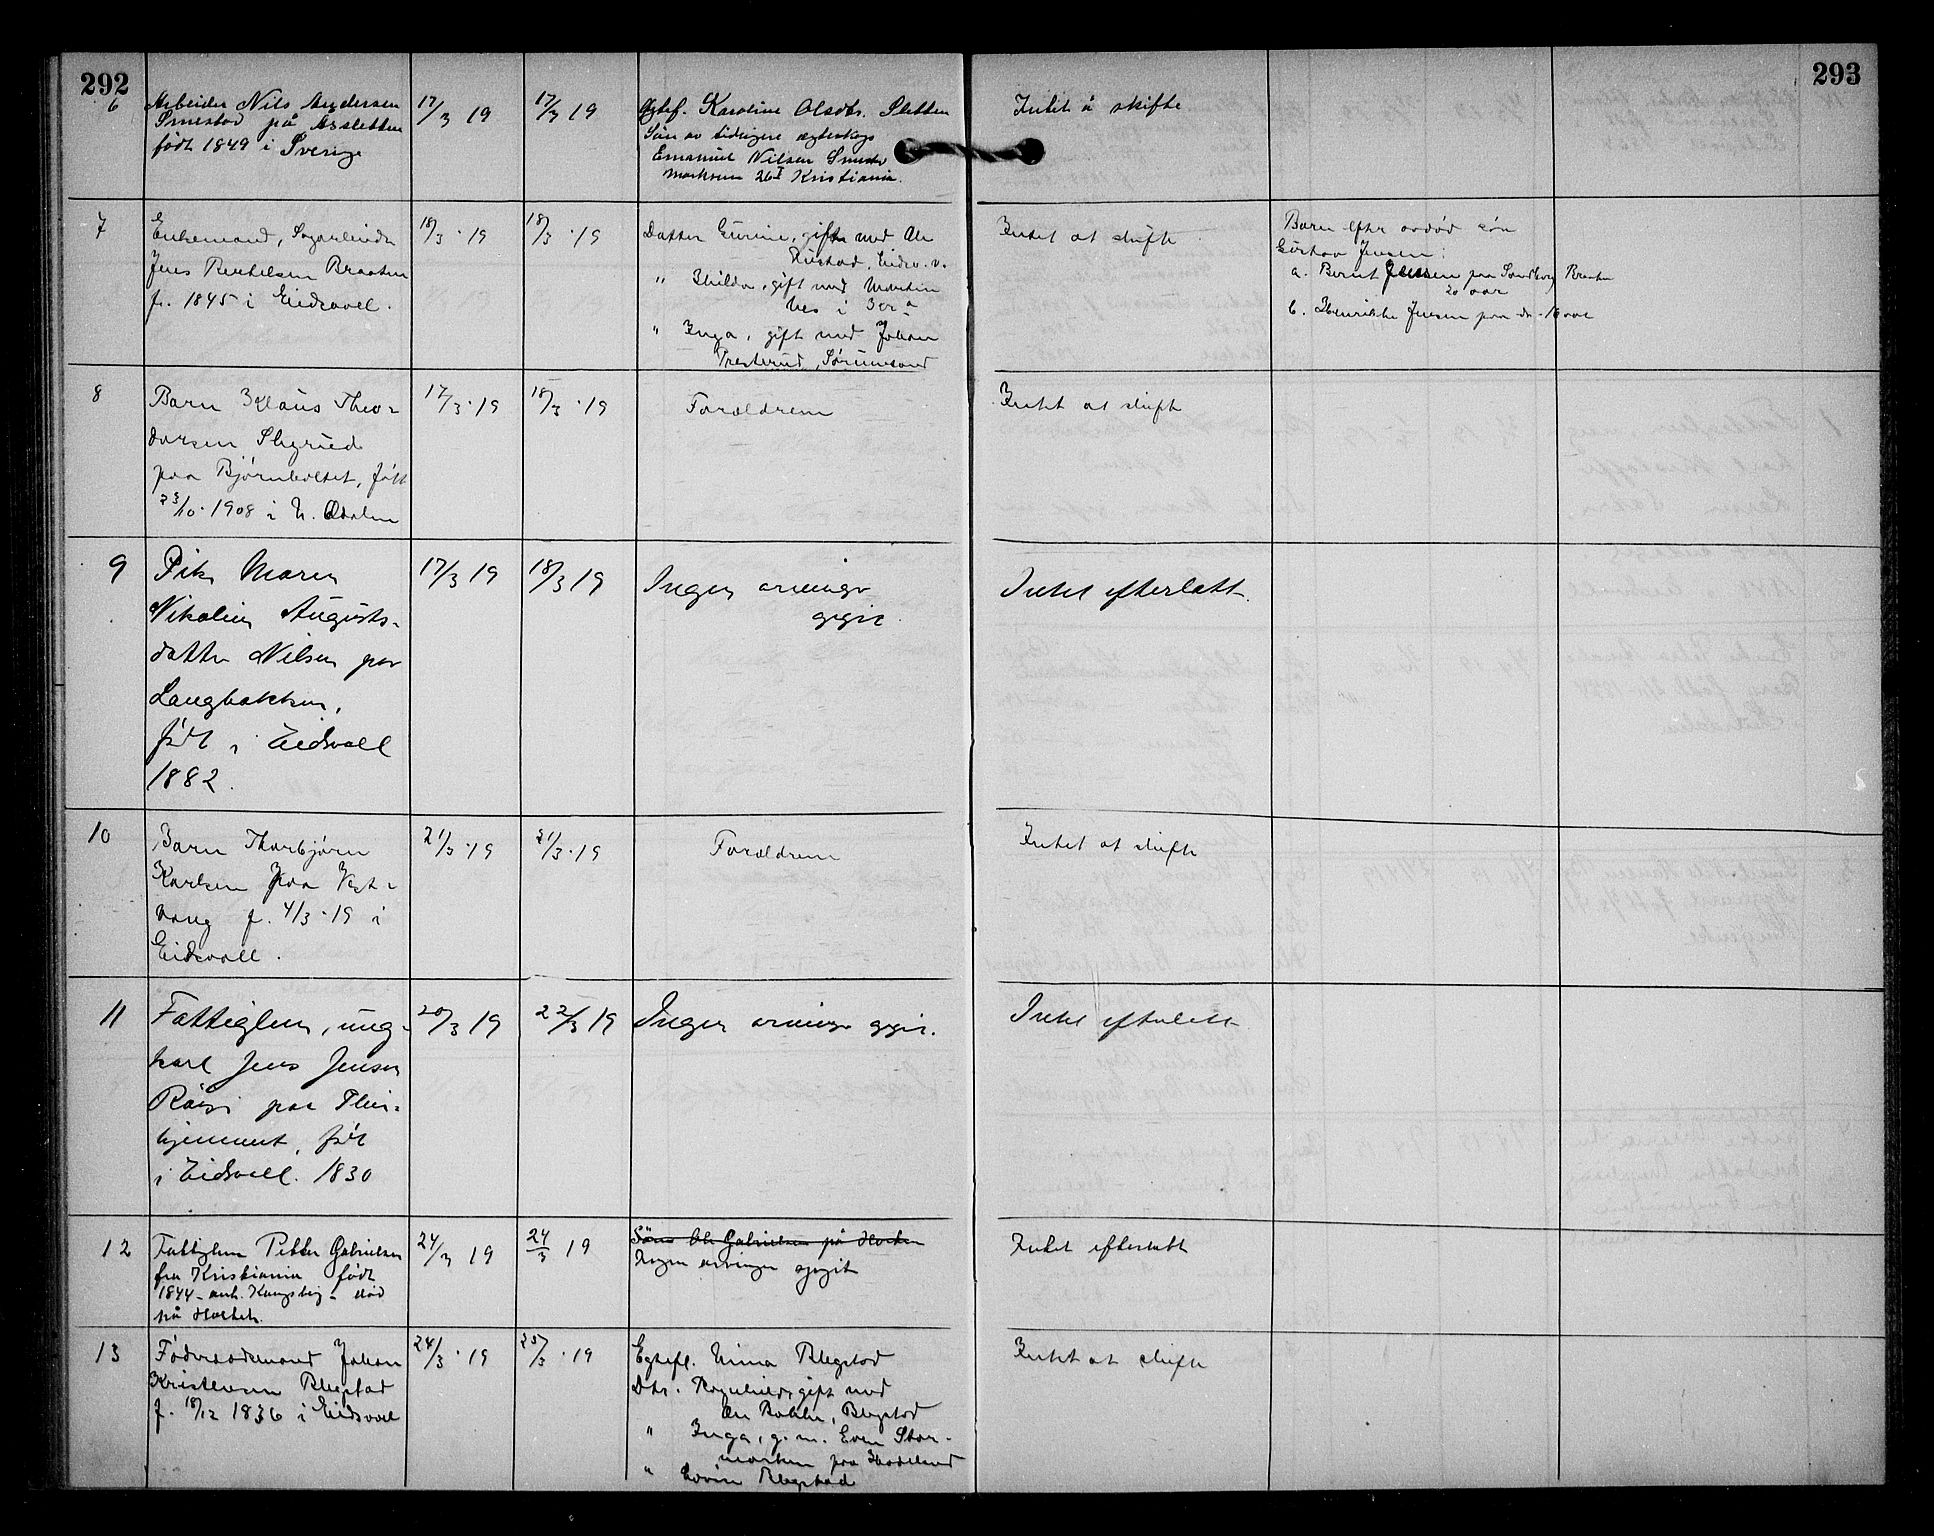 292
293
6
Arbeider Nils Andersen
Smestad på
født 1849 i Sverige
17/3 19
17/3 19
Egtef. Karoline Olsdtr. Sletten
Søn av tidligere egteskap
Emanuel Nilsen
26 I Kristiania.
Intet å skifte
7
Enkemand,
Jens Braaten
f. 1845 i Eidsvoll.
18/3 · 19
18/3 · 19
Datter Gurine, gift med Ole
Rustad, Eidsv. v.
" Hilda, gift med Martin
Nes i
" Inga, gift med Johan
Presterud, Sørumsand
Intet at skifte
Barn efter avdød søn
Gustav Jensen:
a. Bernt Jensen paa Braaten
20 aar
b. Henrikke Jensen paa do - 16 aar
8
Barn Klaus Theo-
dorsen
paa Bjørnholtet, født
23/10 · 1908 i N. Odalen
17/3 · 19
18/3 · 19
Forældrene
Intet at skifte
9
Pike Maren
Nikoline Augusts-
datter Nilsen paa
Langbakken,
født i Eidsvoll
1882.
17/3 19
18/3 19
Ingen arvinge
opgit.
Intet efterlatt.
10
Barn Thorbjørn
Karlsen paa Vest-
vang f. 4/3 · 19 i
Eidsvoll.
21/3 · 19
21/3 · 19
Forældrene
Intet at skifte
11
Fattiglem, ung-
karl Jens Jensen
paa Pleie-
hjemmet, født
i Eidsvoll. 1830
20/3 19
22/3 19
Ingen arvinge opgit.
Intet efterlatt
12
Fattiglem Petter Gabrielsen
fra Kristiania født
1844 - Kongsberg - død
på
24/3 19
24/3 19
Søn Ole Gabrielsen på
Ingen arvinger opgit
Intet efterlatt
13
Føderaadsmand Johan
Kristensen Blegstad
f. 18/12 1836 i Eidsvoll
24/3 · 19
25/3 · 19
Egtefl. Blegstad
Dtr. Ragnhild, gift med
Bakke, Blegstad
" Inga, g. m. Even Stor-
marken paa
" Blegstad
Intet at skifte